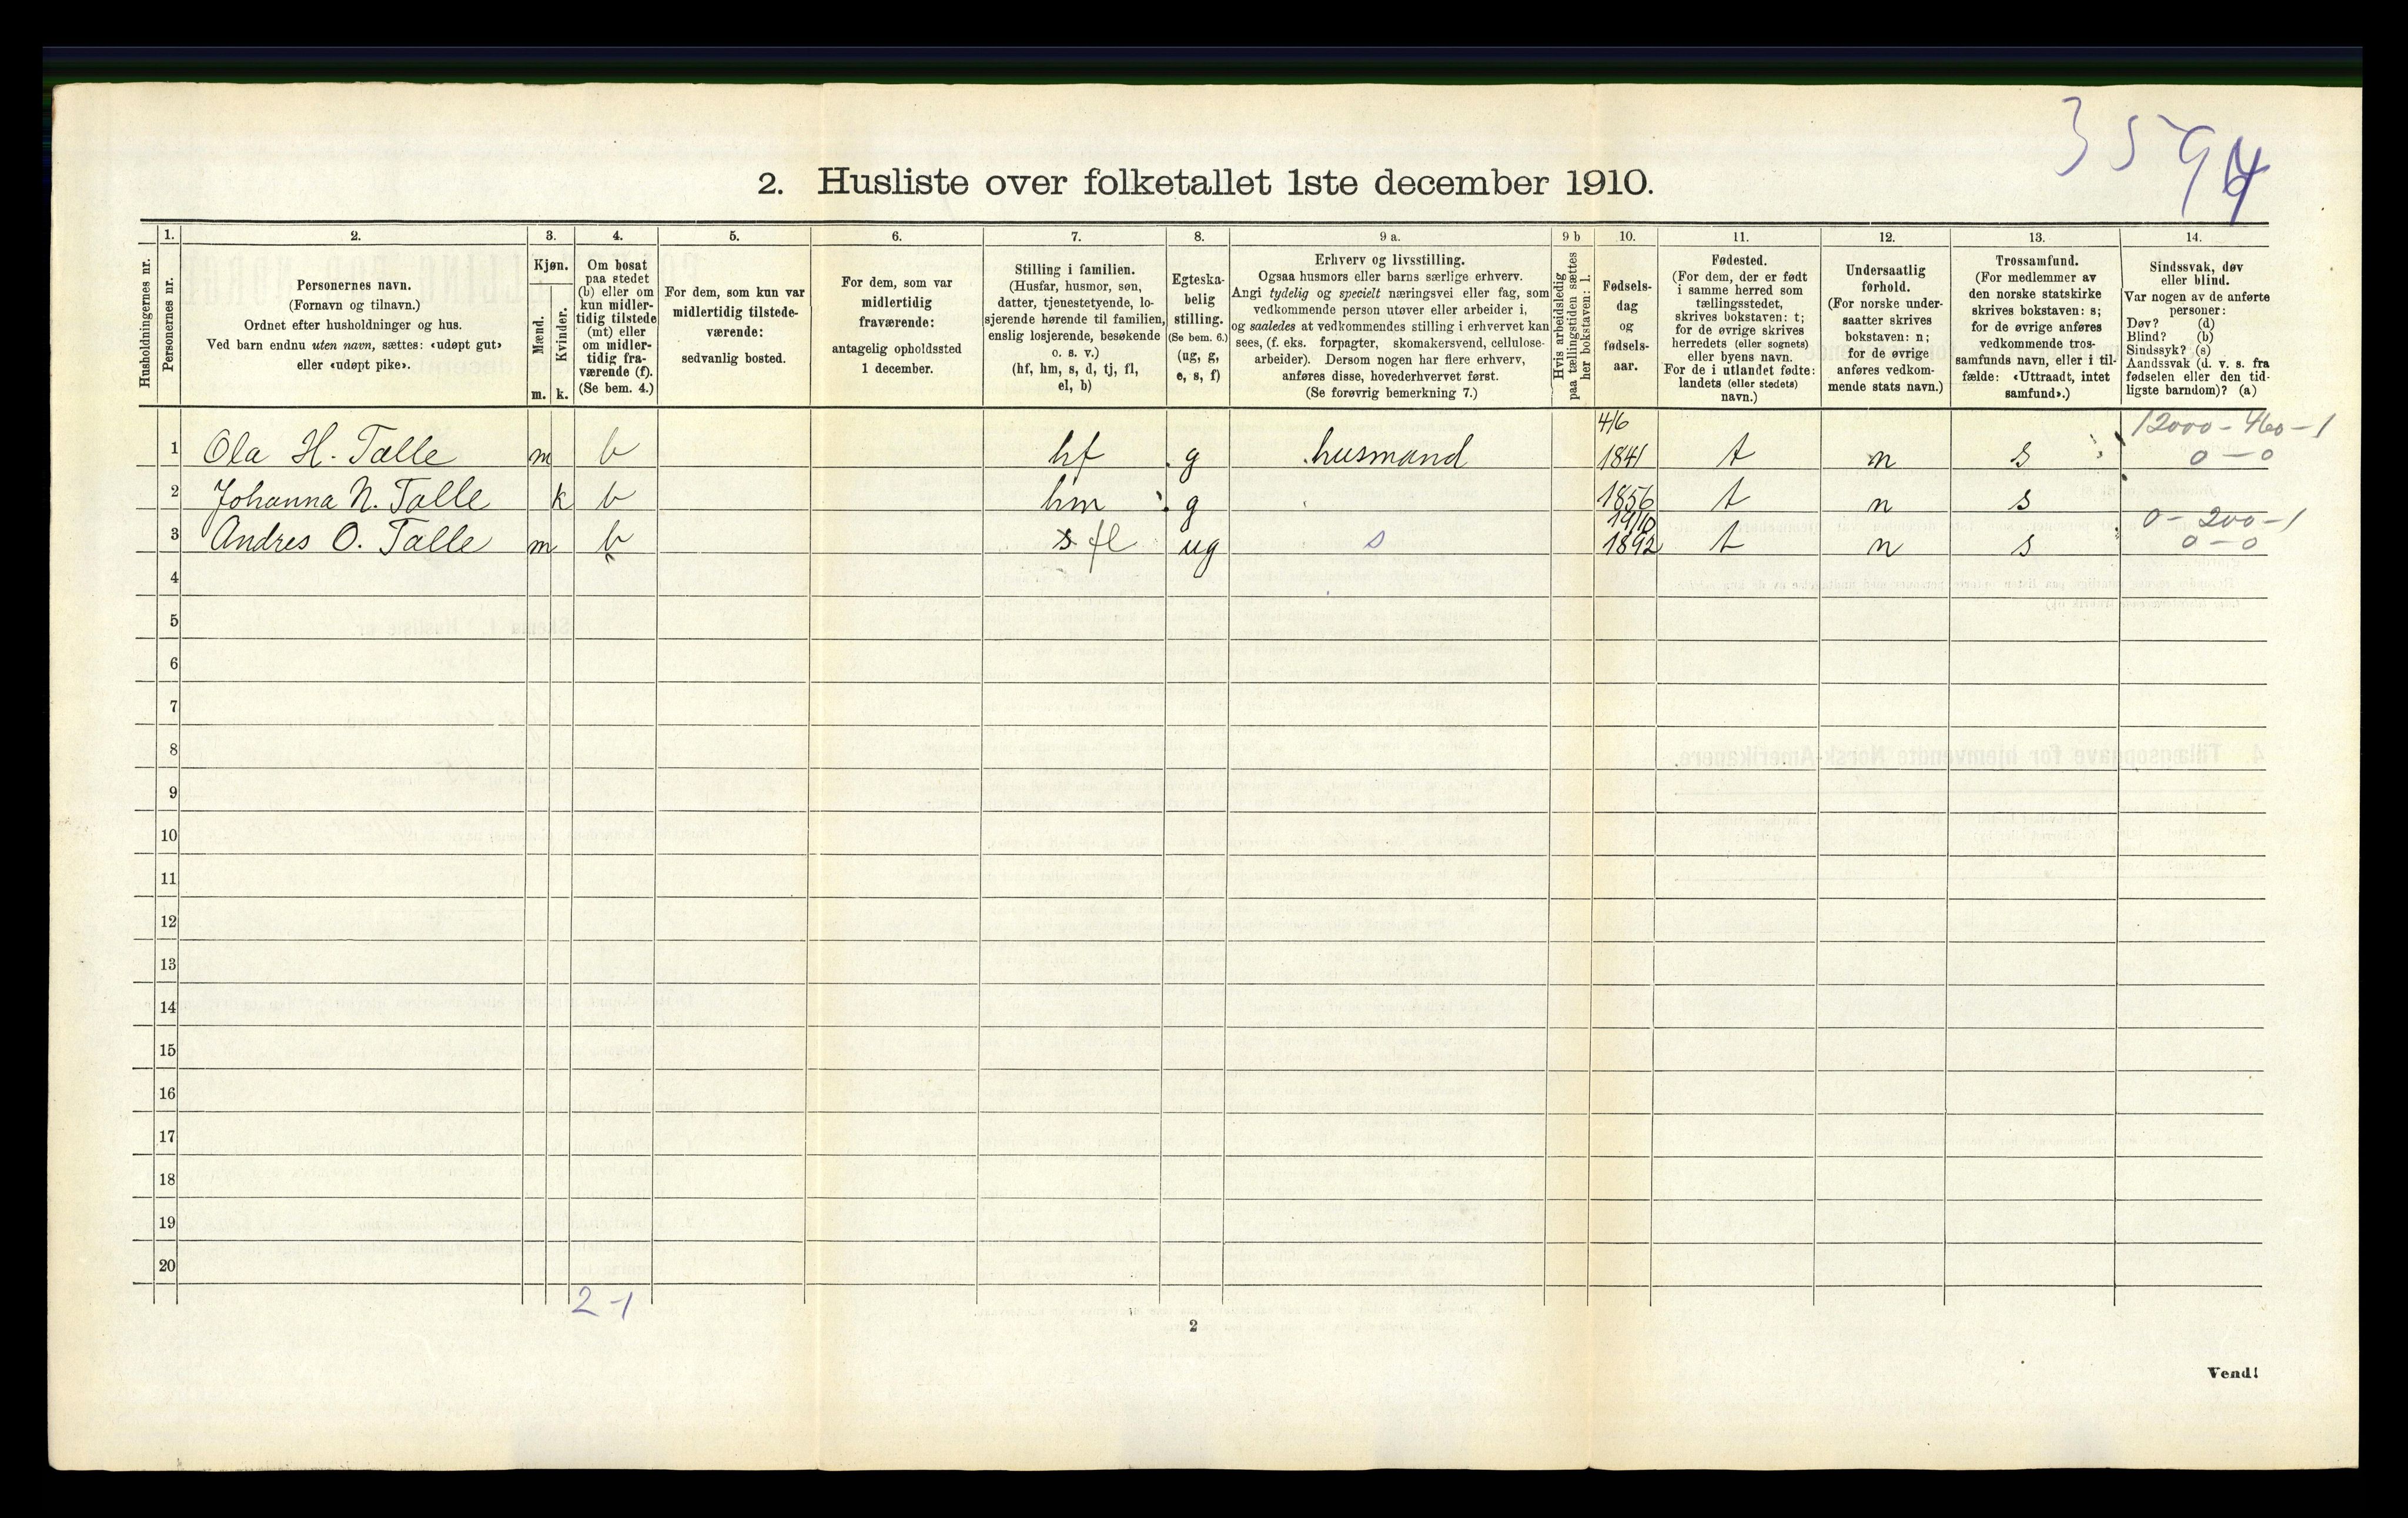 3594
2. Husliste over folketallet 1ste december 1910.
Husholdningernes nr.
1. Personernes nr.
2. Personernes navn.
(Fornavn og tilnavn.)
Ordnet efter husholdninger og hus.
Ved barn endnu uten navn, sættes: «udøpt gut»
eller «udøpt pike».
3. Kjøn.
Mænd. m.
Kvinder. k.
4. Om bosat
paa stedet
(b) eller om
kun midler-
tidig tilstede
(mt) eller
om midler-
tidig fra-
værende (f).
(Se bem. 4.)
5. For dem, som kun var
midlertidig tilstede-
værende:
sedvanlig bosted.
6. For dem, som var
midlertidig
fraværende:
antagelig opholdssted
1 december.
7. Stilling i familien.
(Husfar, husmor, søn,
datter, tjenestetyende, lo-
sjerende hørende til familien,
enslig losjerende, besøkende
o. s. v.)
(hf, hm, s, d, tj, fl,
el, b)
8. Egteska-
belig
stilling.
(Se bem. 6.)
(ug, g,
e, s, f)
9 a. Erhverv og livsstilling.
Ogsaa husmors eller barns særlige erhverv.
Angi tydelig og specielt næringsvei eller fag, som
vedkommende person utøver eller arbeider i,
og saaledes at vedkommendes stilling i erhvervet kan
sees, (f. eks. forpagter, skomakersvend, cellulose-
arbeider). Dersom nogen har flere erhverv,
anføres disse, hovederhvervet først.
(Se forøvrig bemerkning 7.)
9 b
Hvis arbeidsledig
paa tællingstiden sættes
her bokstaven: l.
10. Fødsels-
dag
og
fødsels-
aar.
11. Fødested.
(For dem, der er født
i samme herred som
tællingsstedet,
skrives bokstaven: t;
for de øvrige skrives
herredets (eller sognets)
eller byens navn.
For de i utlandet fødte:
landets (eller stedets)
navn.)
12. Undersaatlig
forhold.
(For norske under-
saatter skrives
bokstaven: n;
for de øvrige
anføres vedkom-
mende stats navn.)
13. Trossamfund.
(For medlemmer av
den norske statskirke
skrives bokstaven: s;
for de øvrige anføres
vedkommende tros-
samfunds navn, eller i til-
fælde: «Uttraadt, intet
samfund».)
14. Sindssvak, døv
eller blind.
Var nogen av de anførte
personer:
Døv? (d)
Blind? (b)
Sindssyk? (s)
Aandssvak (d. v. s. fra
fødselen eller den tid-
ligste barndom)? (a)
1 Ola H. Talle m b hf g husmand 4/6 1841 t n s 12000-460-1 0-0
2 Johanna N. Talle k b hm g 1856 t n s
3 Andres O. Talle m b s fl ug s 19/10 1892 t n s 0-200-1 0-0
4
5
6
7
8
9
10
11
12
13
14
15
16
17
18
19
20
2-1
2
Vend!